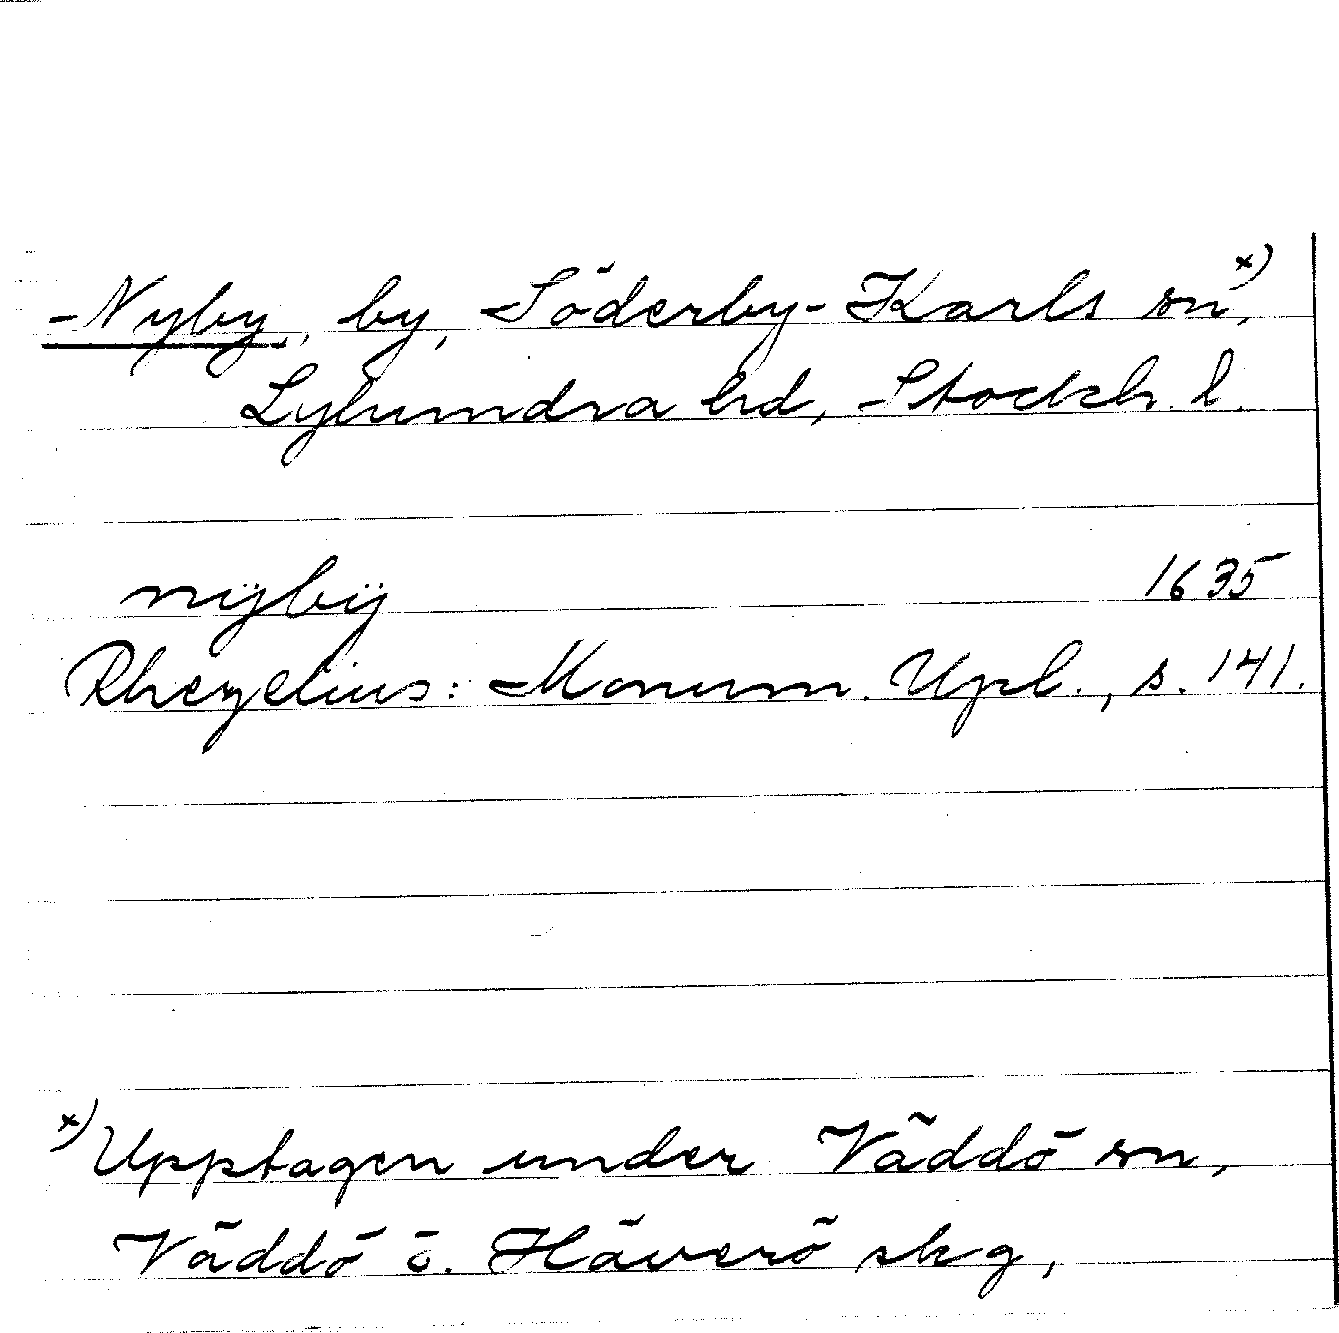 Nyby, by, Söderby-Karls sn x),
Lyhundra hd, Stockh. l.
nÿbÿ 1635
Rhezelius: Monum. Upl., s. 141.
x) Upptagen under Väddö sn,
Väddö o. Häverö skg,